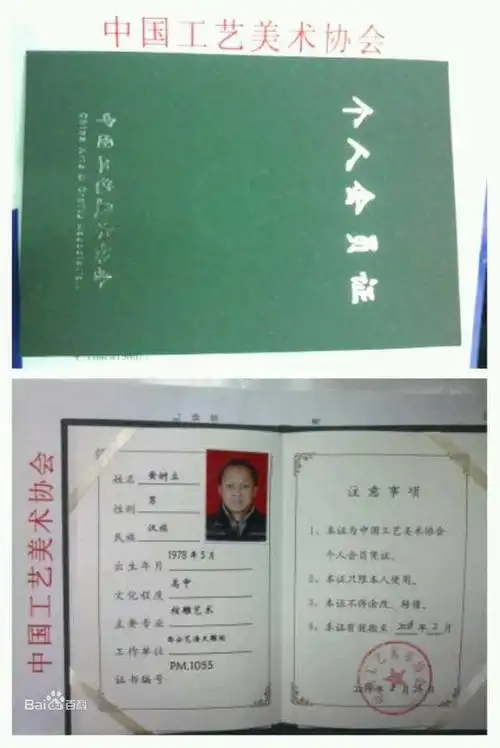 中国工艺美术协会
个人会员证
中国工艺美术协会
China Arts & Crafts Association
中国工艺美术协会
姓名 黄树立
性别 男
民族 汉族
出生年月 1978年5月
文化程度 高中
主要专业 根雕艺术
工作单位
证书编号 PM.1055
注意事项
1、本证为中国工艺美术协会
个人会员凭证。
2、本证只限本人使用。
3、本证不得涂改、转借。
4、本证有效期至 年2月
工艺美术协会
Bai百科